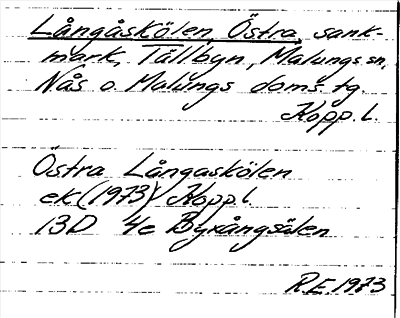 Långåskölen, Östra, sank-
mark, Tällbyn, Malungs sn,
Nås o. Malungs doms.tg.
Kopp. l.
Östra Långaskölen
ek (1973) Kopp. l.
13D 4e Byrångsälen
R.E. 1973